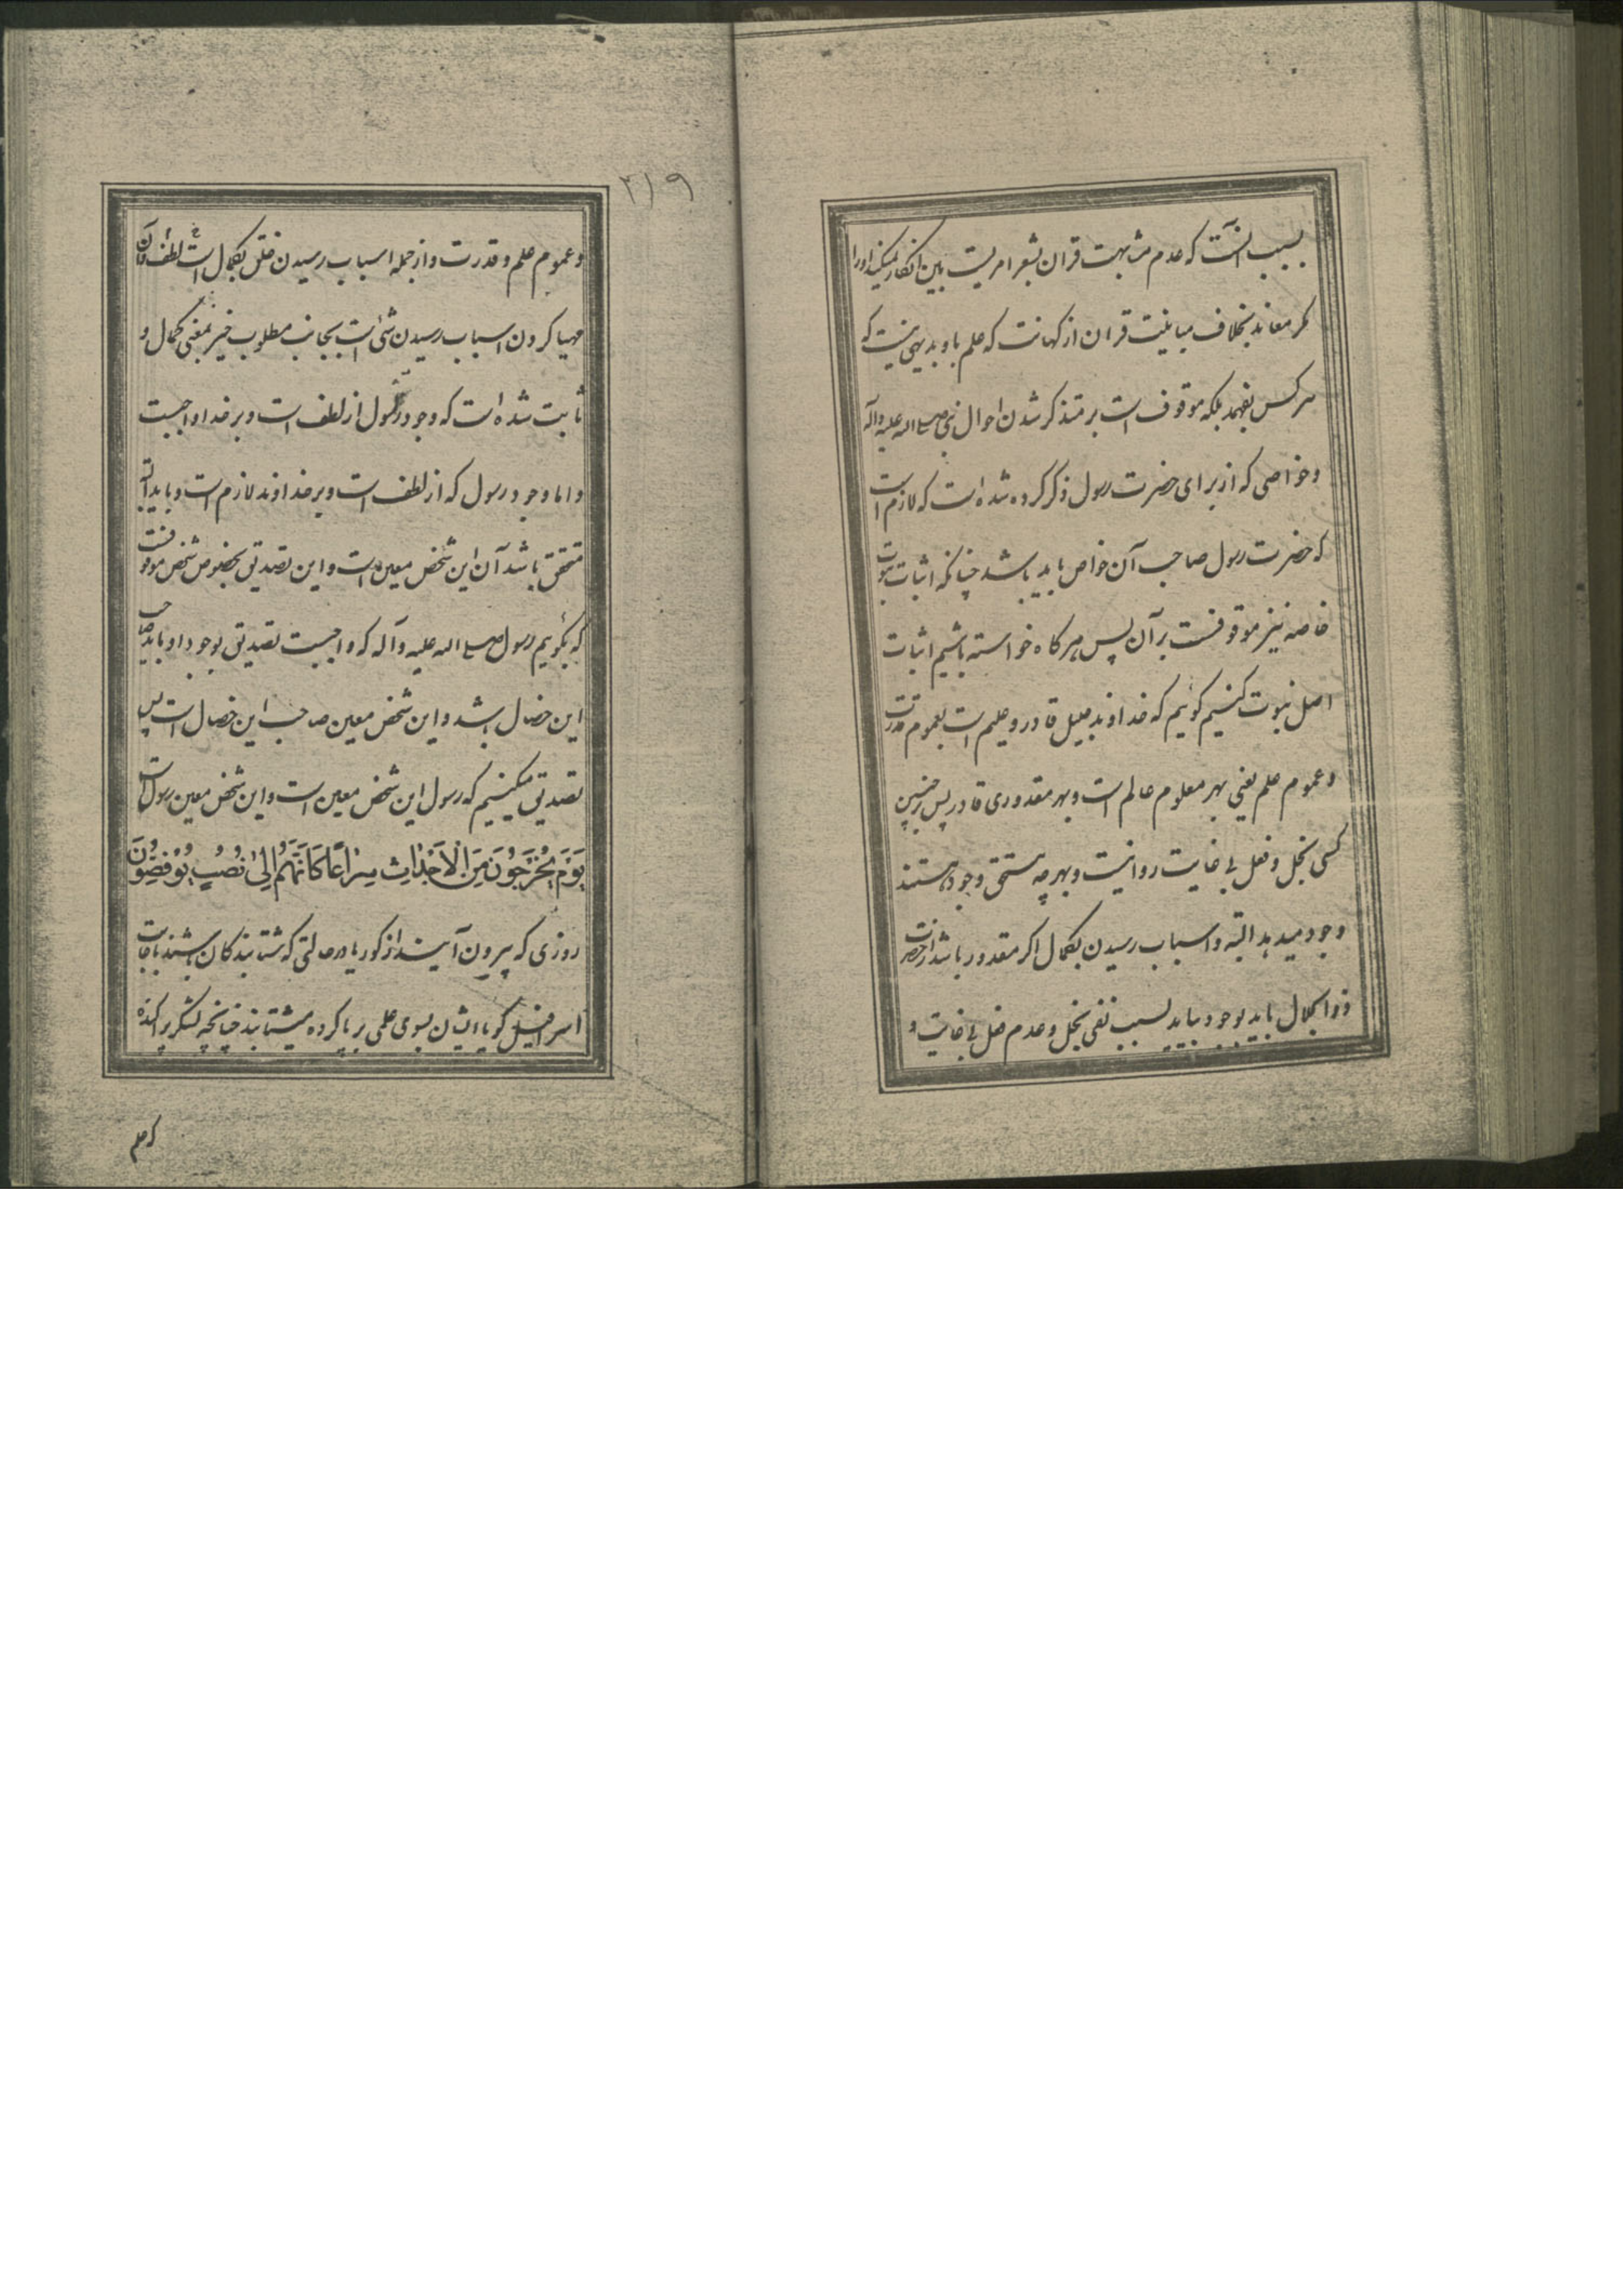 بسبب آنست که عدم مشابهت قران بشعر امریست بین انکار نمیکند او را
مکر معاند بخلاف مباینت قران از کهانت که علم باو بدیهی نیست که
هر کس بفهمد بلکه موقوف است بر متذکر شدن احوال نبی صلی الله علیه وآله
و خواصی که از برای حضرت رسول ذکر کرده شده است که لازم است
که حضرت رسول صاحب آن خواص باید باشد چنانکه اثبات نبوت
خاصه نیز موقوفست بر آن پس هر کاه خواسته باشیم اثبات
اصل نبوت کنیم کوئیم که خداوند جلیل قادر و علیم است بعموم قدرت
و عموم علم یعنی بهر معلوم عالم است و بهر مقدوری قادر پس بر چنین
کسی بخل و فعل بی غایت روا نیست و بهر چه مستحق وجود هستند
وجود میدهد البته و اسباب رسیدن بکمال اکر مقدور باشد از حضرت
ذو الجلال باید بوجود بیاید بسبب نفی بخل و عدم فعل بی غایت و
۲۱۹
و عموم علم و قدرت و از جمله اسباب رسیدن خلق بکمال است لطف
مهیا کردن اسباب رسیدن شئ است بجانب مطلوب خیر بمعنی کمال و
ثابت شده است که وجود رسول از لطف است و بر خدا واجبست
و اما وجود رسول که از لطف است و بر خداوند لازم است و باید البته
متحقق باشد آن این شخص معین است و این تصدیق بخصوص شخص موقوفست
که بکوئیم رسول صلی الله علیه وآله که واجبست تصدیق بوجود او باید صاحب
این خصال باشد و این شخص معین صاحب این خصال است پس
تصدیق میکنیم که رسول این شخص معین است و این شخص معین رسول است
يَوْمَ يَخْرُجُونَ مِنَ الْاَجْدٰاثِ سِرٰاعًا كَاَنَّهُمْ اِلىٰ نُصُبٍ يُوفِضُونَ
روزی که بیرون آیند از کورها در حالتی که شتابندکان باشند باجابت
اسرافیل کویا ایشان بسوی علمی بر پا کرده میشتابند چنانچه لشکر پراکنده
که علم